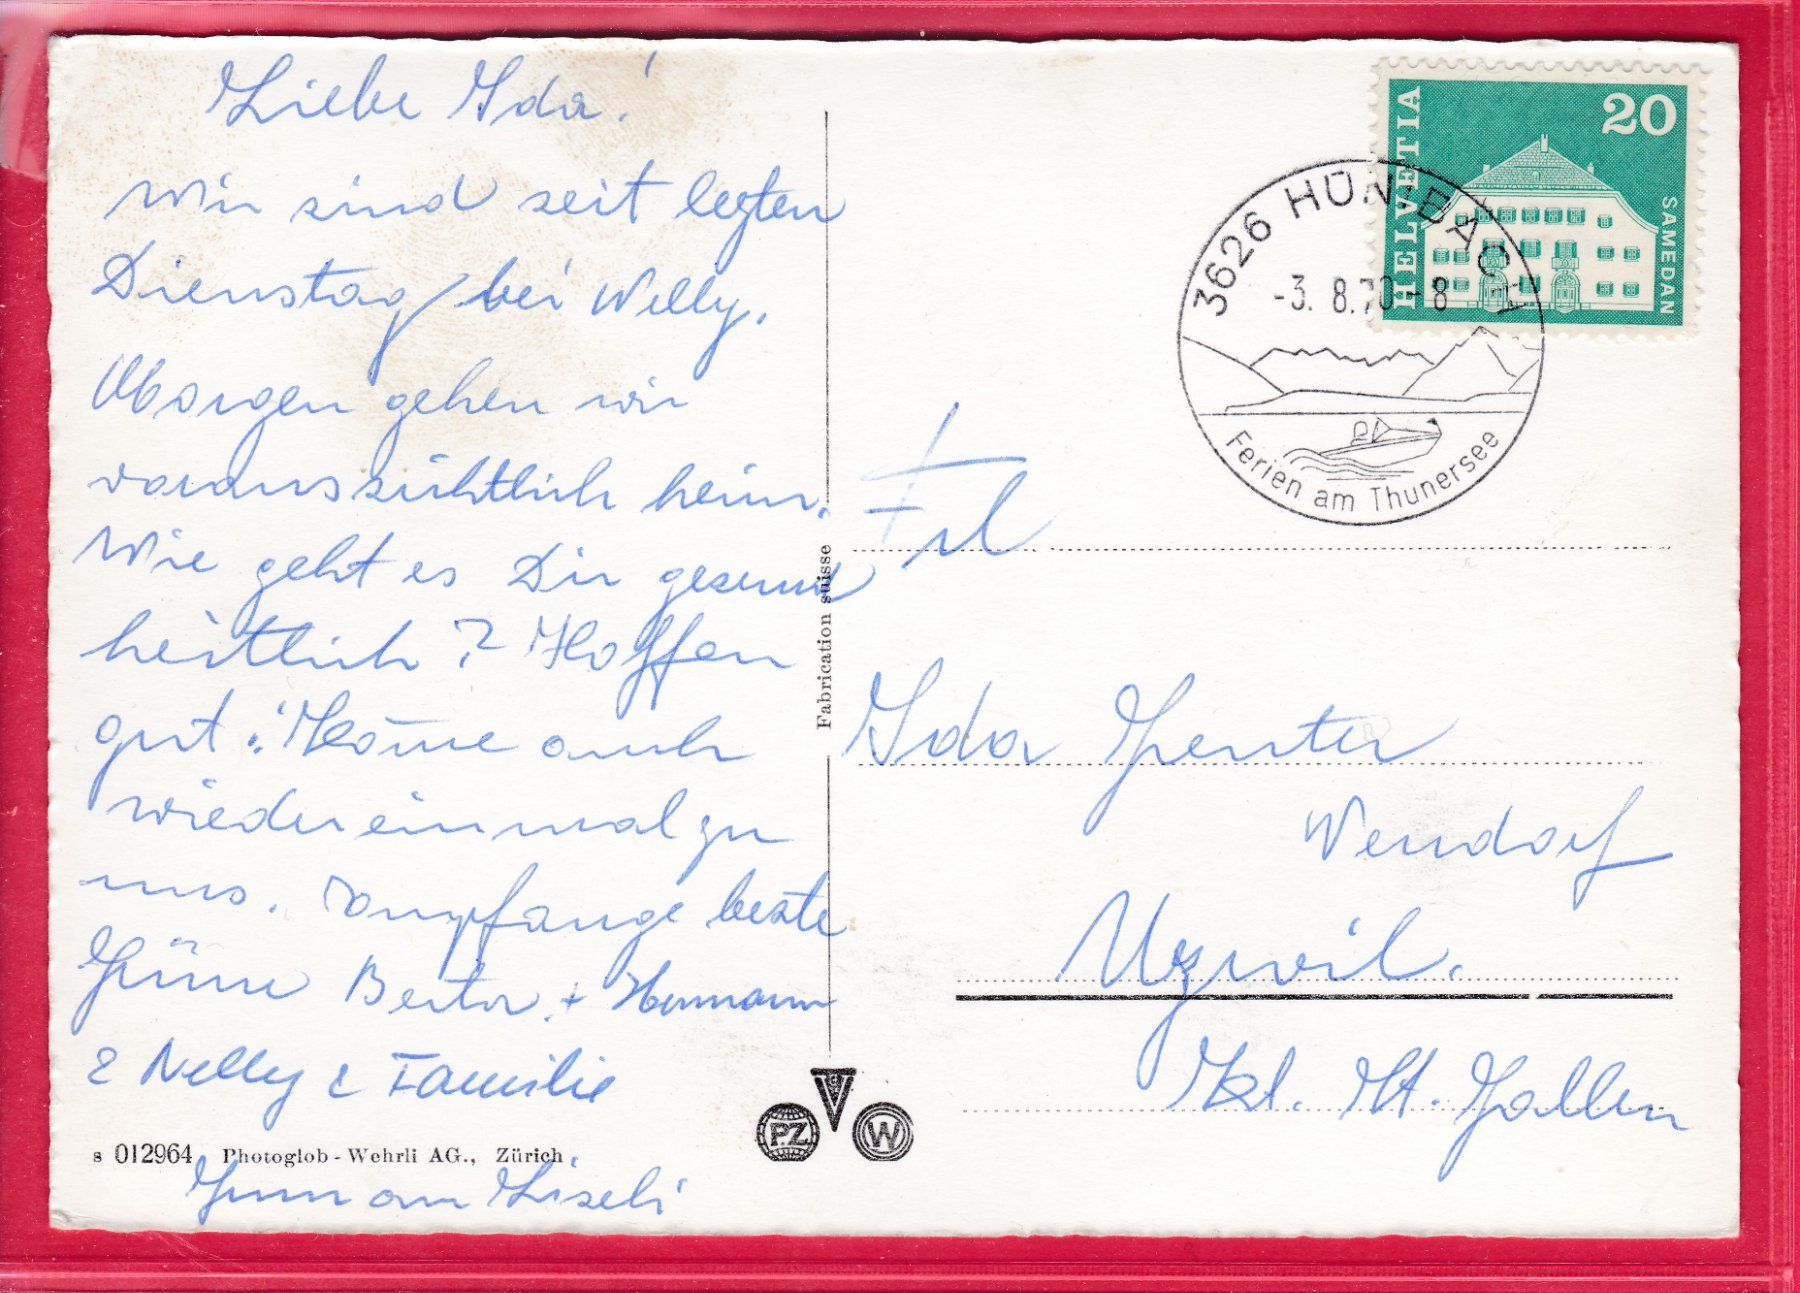 Liebe Ida!
Wir sind seit letzten
Dienstag bei Willy.
Morgen gehen wir
voraussichtlich heim.
Wie geht es Dir gesund
heitlich? Hoffen
gut. Kome auch
wieder einmal zu
uns. Empfange beste
Grüsse Berta + Hermann
& Nelly & Familie
s 012964 Photoglob-Wehrli AG., Zürich
Gruss an Liseli
Fabrication suisse
PZ V W
HELVETIA 20 SAMEDAN
3626 HÜNIBACH
-3. 8.70-8
Ferien am Thunersee
Frl
Ida Genter
Uzwil.
Kt. St. Gallen